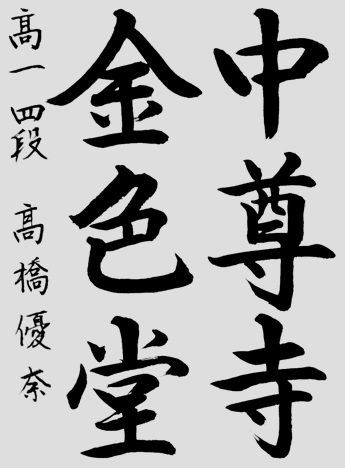 中尊寺
金色堂
高一 四段 髙橋優奈